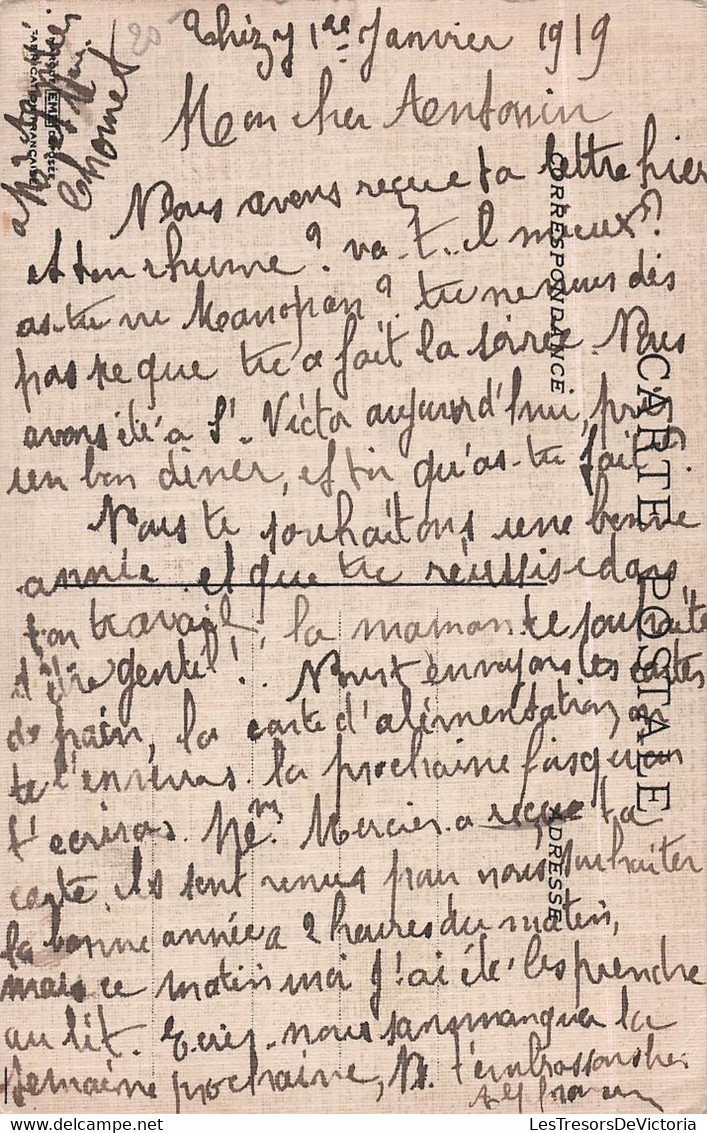 Thizy 1re Janvier 1919
Mon cher Antonin
Nous avons reçue ta lettre hier
et ton rhume? va-t-il mieux?
as-tu vu Manopan? tu ne nous dis
pas ce que tu a fait la soirée. Nous
avons été à St-Victor aujourd'hui, pris
un bon diner, et toi qu'as-tu fait.
Nous te souhaitons une bonne
année et que tu réussise dans
ton travail, la maman te souhaite
d'être gentil! Nous t'envoyons les cartes
de pain, la carte d'alimentation, on
te l'enverras la prochaine fois qu'on
t'écriras. Me. Mercier a reçue ta
carte ils sont venus pour nous souhaiter
la bonne année a 2 heures du matin,
mais ce matin moi j'ai été les prendre
au lit. Ecris-nous sans manquer la
semaine prochaine, N. t'embrassons
Chomel
CORRESPONDANCE
CARTE POSTALE
ADRESSE
FABRICATION FRANÇAISE
20
LesTresorsDeVictoria